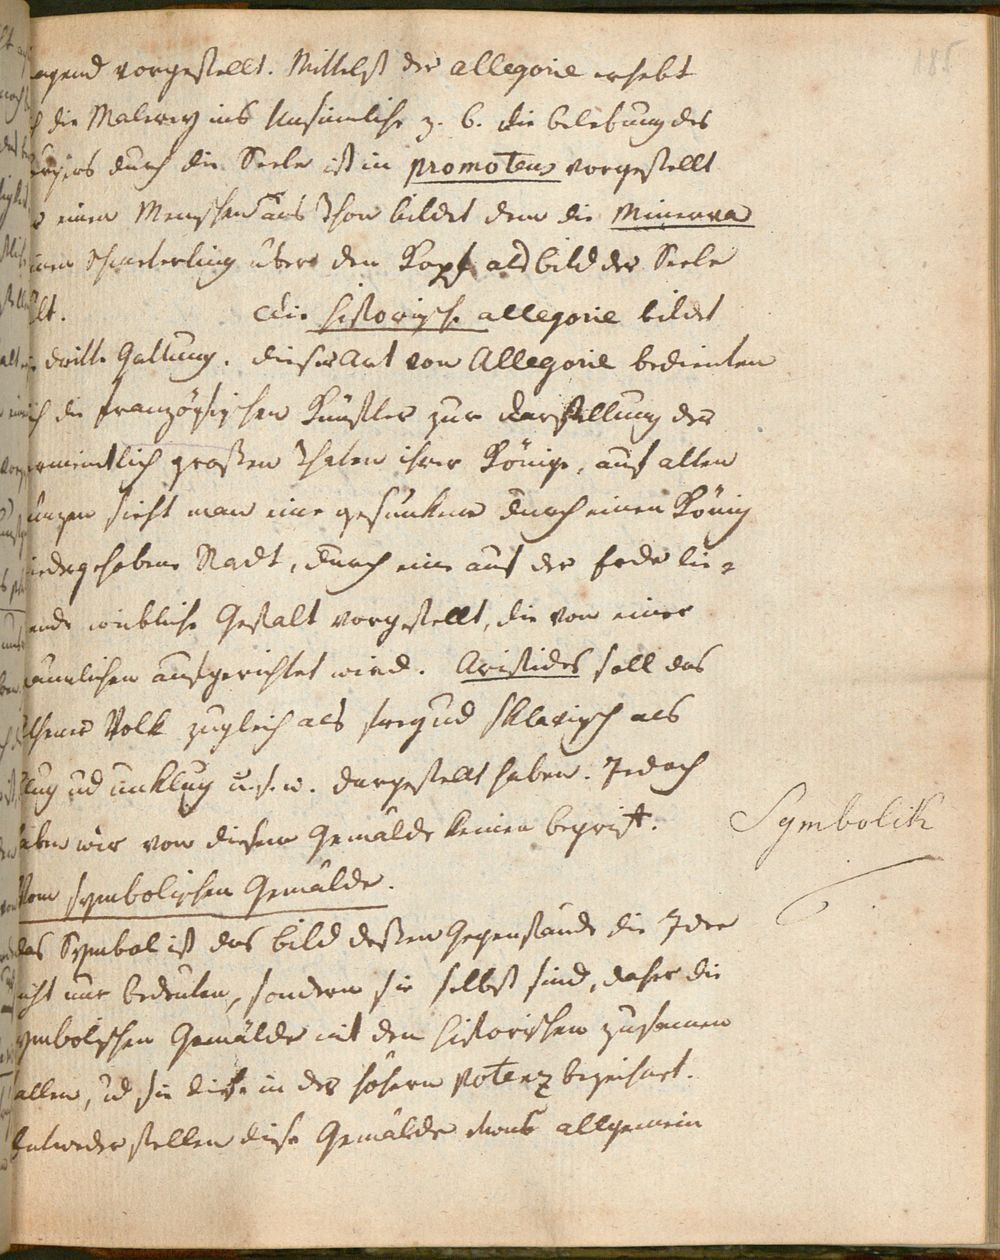 185
agend vorgestellt. Mittelst der allegorie erhebt
die Malerey ins Unsinnliche z. b. die belebung des
Körpers durch die Seele ist in promoteus vorgestellt
einen Menschen aus Thon bildet dem die Minerva
einen Schmeterling über den Kopf als bild der Seele
hält. die historische allegorie bildet
dritte Gattung. dieser Art von Allegorie bedienten
sich die französischen Künstler zur darstellung der
vermeintlich großen Thaten ihrer Könige, auf alten
sieht man eine gesunkene durch einen König
wiedergehobene Stadt, durch eine auf der Erde lie-
gende weibliche Gestalt vorgestellt, die von einer
männlichen aufgerichtet wird. Aristides soll das
Athener Volk zugleich als frey ud sklavisch als
klug ud unklug u. s. w. dargestellt haben. Jedoch
haben wir von diesem Gemälde keinen begrift.
Symbolik
Vom symbolischen Gemälde.
das Symbol ist das bild deßen Gegenstände die Idee
nicht nur bedeuten, sondern sie selbst sind, daher die
symbolischen Gemälde mit den historischen zusammen
fallen, ud sie diese in der höhern Potenz bezeichnet.
Entweder stellen diese Gemälde etwas allgemein